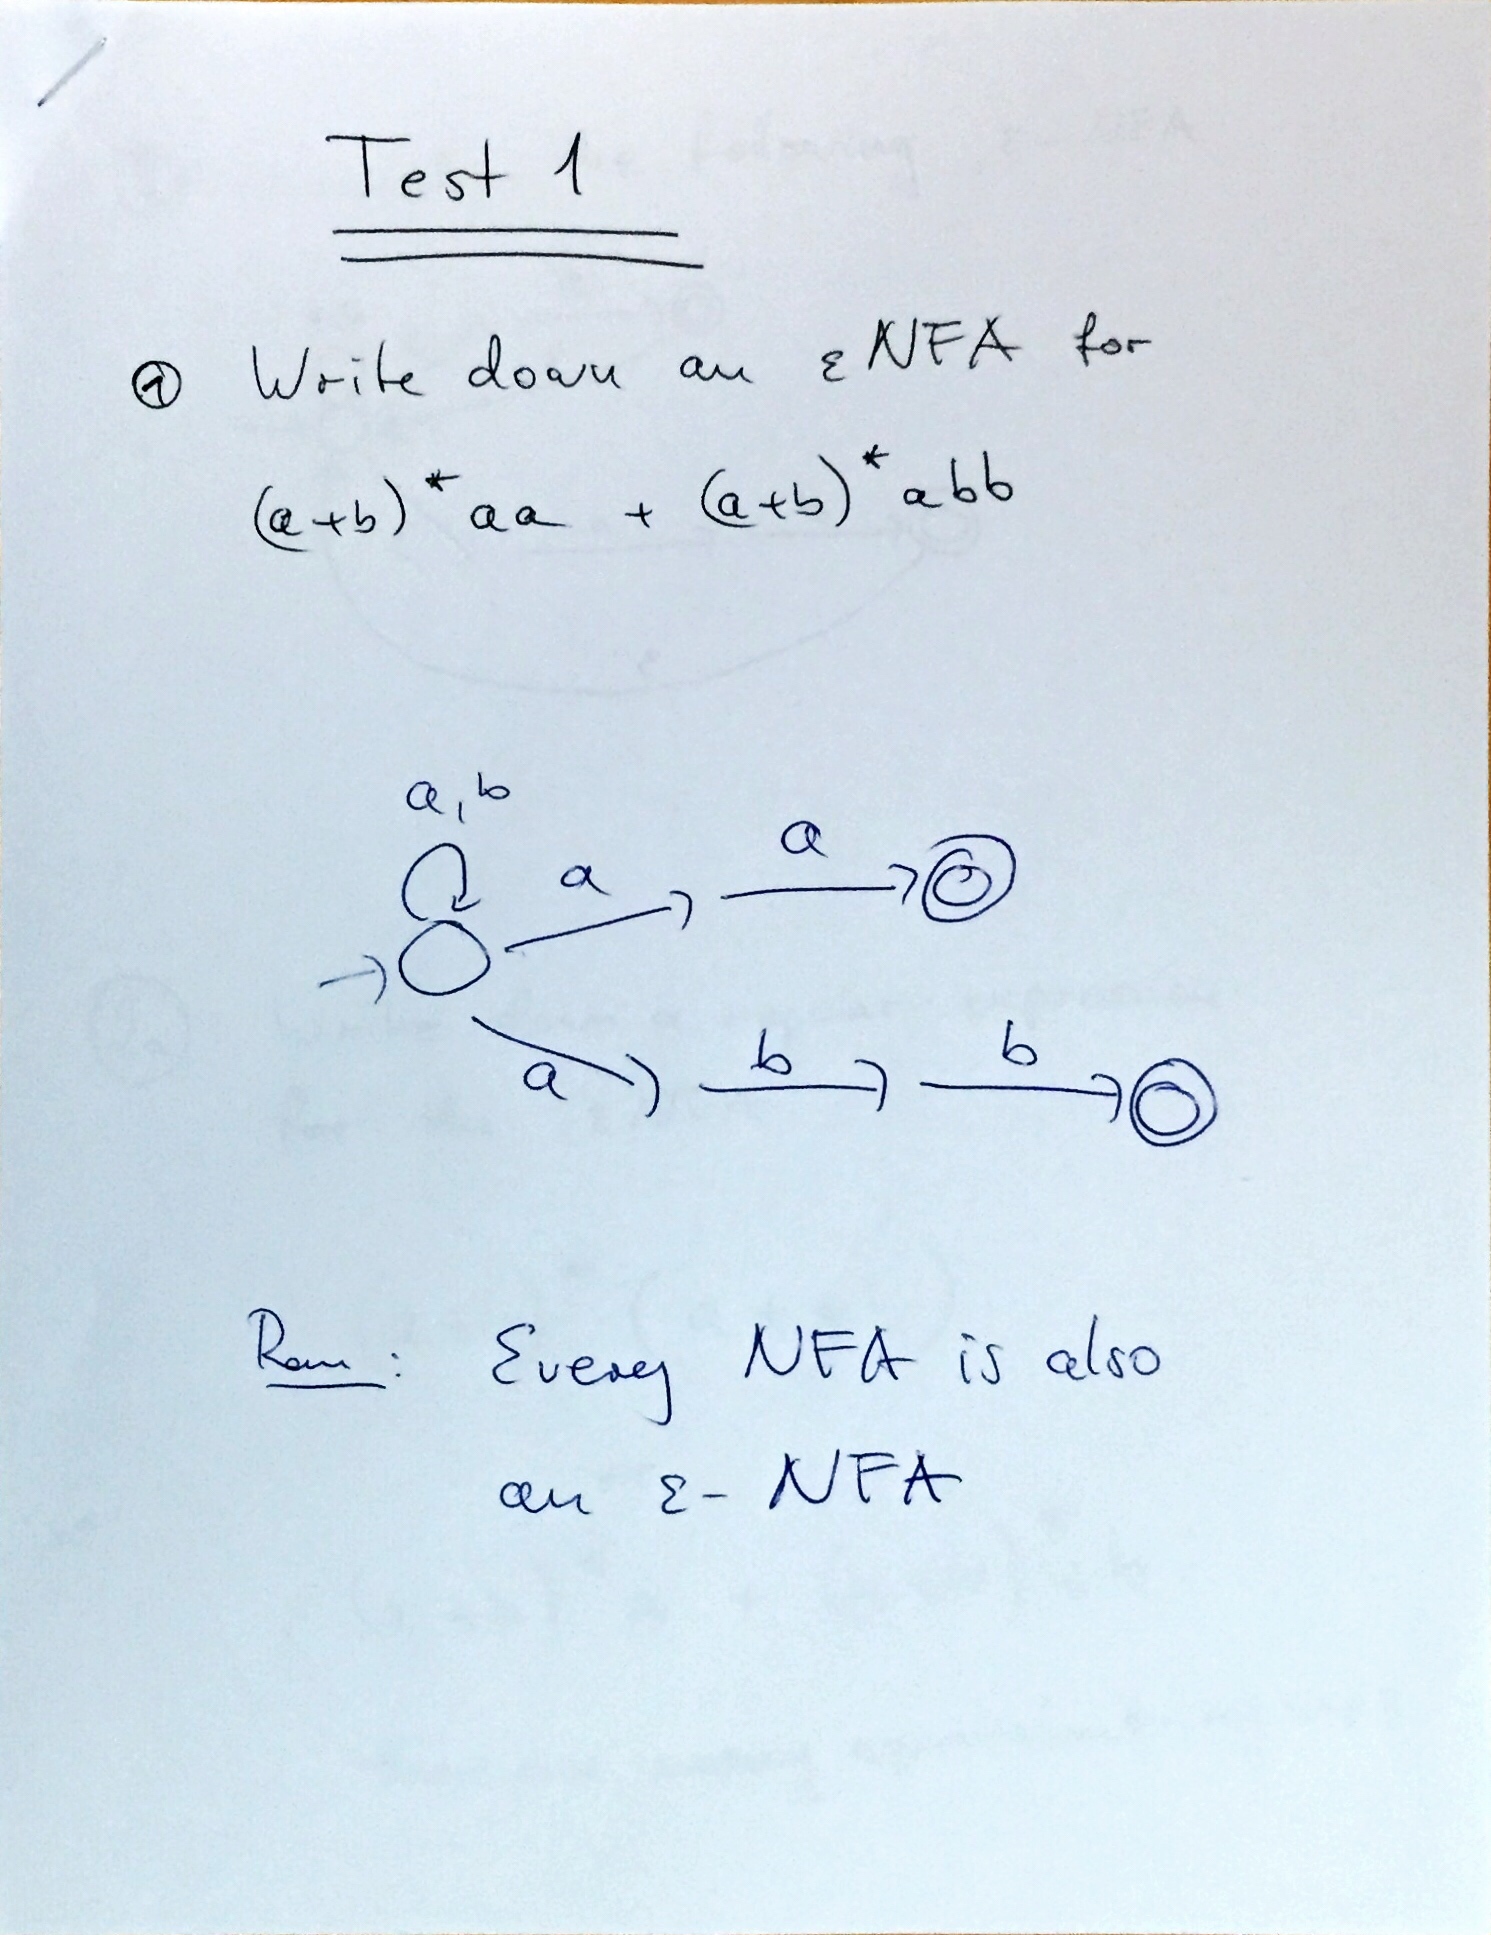 Test 1
① Write down an εNFA for
(a+b)*aa + (a+b)*abb
a,b
a
a
a
b
b
Rem: Every NFA is also
an ε-NFA